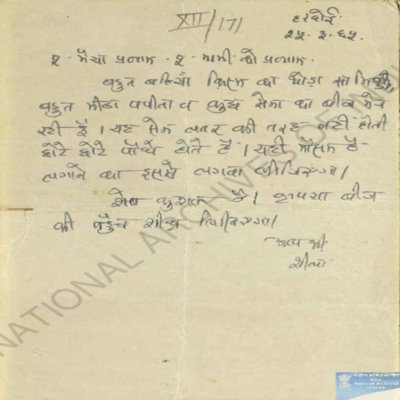 XII/171
हरदोई
२५.३.६५
पू. भैया प्रणाम. पू. भाभी को प्रणाम.
बहुत बढ़िया किस्म का थोड़ा सा
बहुत मीठा पपीता व कुछ सेम का बीज भेज
रही हूँ। यह सेम लतर की तरह नहीं होती
छोटे छोटे पौधे होते हैं। यही मौसम है
लगाने का इससे लगवा लीजिएगा।
शेष कुशल है। कृपया बीज
की पहुँच शीघ्र लिखिएगा।
आप की
शीला
NATIONAL ARCHIVES OF